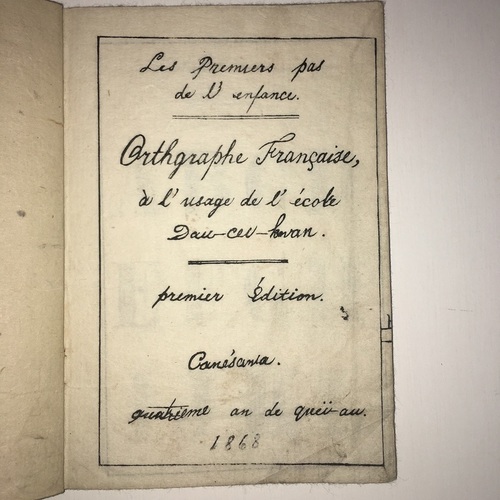 Les Premiers pas
de l' enfance.
Orthgraphe Française,
à l' usage de l' école
Dau-cei-kwan.
premier Édition.
Canésawa.
quatrieme an de queïi-au.
1868